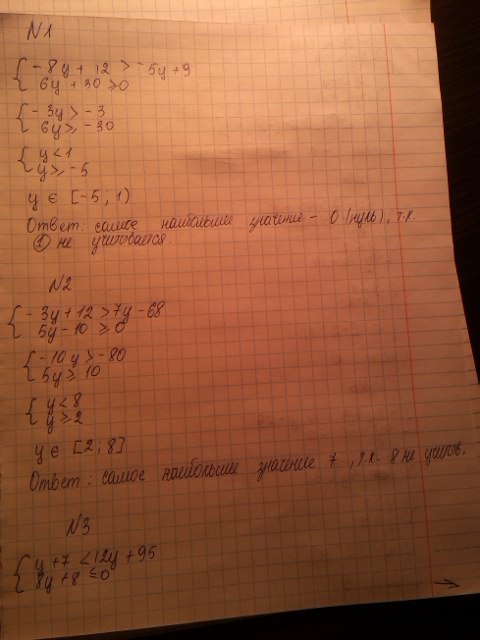 N1
{ -8y + 12 > -5y + 9
6y + 30 ≥ 0
{ -3y > -3
6y ≥ -30
{ y < 1
y ≥ -5
y ∈ [-5; 1)
Ответ: самое наибольшее значение - 0 (нуль), т.к.
① не учитывается.
N2
{ -3y + 12 > 7y - 68
5y - 10 ≥ 0
{ -10y > -80
5y ≥ 10
{ y < 8
y ≥ 2
y ∈ [2; 8]
Ответ: самое наибольшее значение 7, т.к. 8 не учитов.
N3
{ y + 7 < 12y + 95
8y + 8 ≤ 0
→